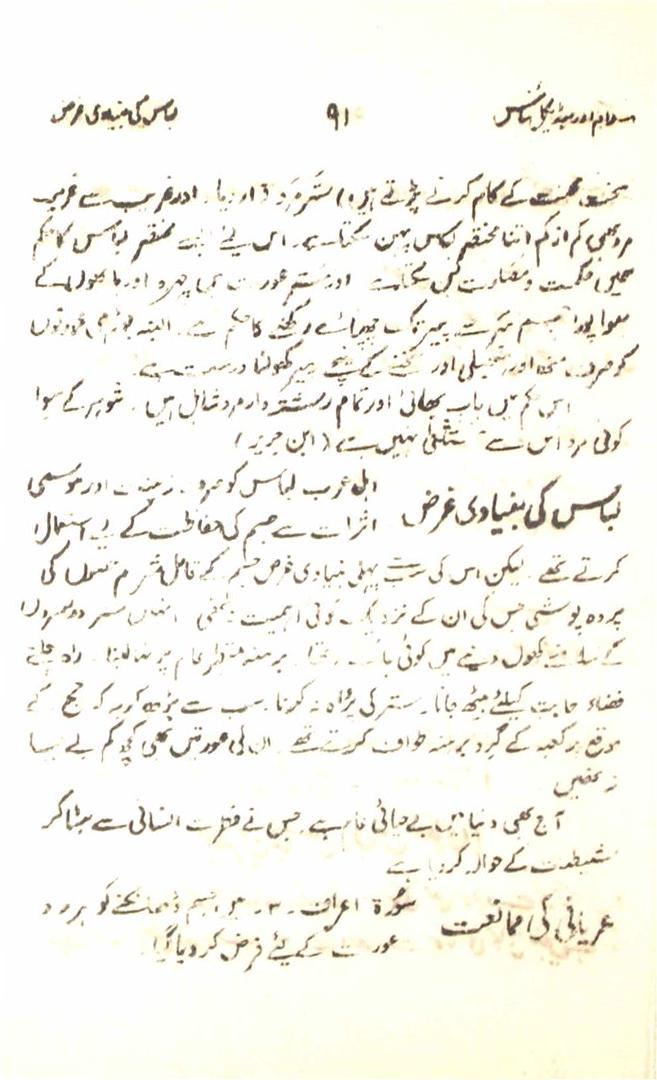 اسلام اور میڈیکل سائنس ۹۱ لباس کی بنیادی غرض
سخت محنت کے کام کرنے پڑتے ہیں) ستر مرد اور غریب سے غریب
مرد بھی کم از کم اتنا مختصر لباس پہن سکتا ہے۔ اس لیئے اسے مختصر لباس کا حکم
حکمت اور ستر عورت میں چہرہ اور ہاتھوں کے
سوا پورا جسم سر سے پیر تک چھپائے رکھنے کا حکم ہے۔ البتہ بوڑھی عورتوں
کو صرف منہ اور ہتھیلی اور ٹخنے کے نیچے پیر کھولنا درست ہے
اس حکم میں باپ بھائی اور تمام رشتہ دار مرد شامل ہیں۔ شوہر کے سوا
کوئی مرد اس سے مستثنیٰ نہیں ہے (ابن جریر)
لباس کی بنیادی غرض اہل عرب لباس کو صرف زینت اور موسمی
اثرات سے جسم کی حفاظت کے لیے استعمال
کرتے تھے۔ لیکن اس کی سب سے پہلی بنیادی غرض جسم کے قابل شرم حصوں کی
پردہ پوشی جس کی ان کے نزدیک کوئی اہمیت نہ تھی۔ انہیں ستر دوسروں
کے سامنے کھول دینے میں کوئی باک نہ تھا۔ برہنہ منظر عام پر نہا لینا۔ راہ چلتے
قضاء حاجت کیلئے بیٹھ جانا۔ ستر کی پرواہ نہ کرنا۔ سب سے بڑھ کر یہ کہ حج کے
موقع پر کعبہ کے گرد برہنہ طواف کرتے تھے۔ ان کی عورتیں بھی کچھ کم بے حیا
نہ تھیں
آج بھی دنیا میں بے حیائی عام ہے۔ جس نے فطرت انسانی سے ہٹا کر
شیطنت کے حوالہ کر دیا ہے
عریانی کی ممانعت سورۃ اعراف۔ ۳۔ میں جسم ڈھانکنے کو ہر مرد
عورت کے لیئے فرض کر دیا گیا۔